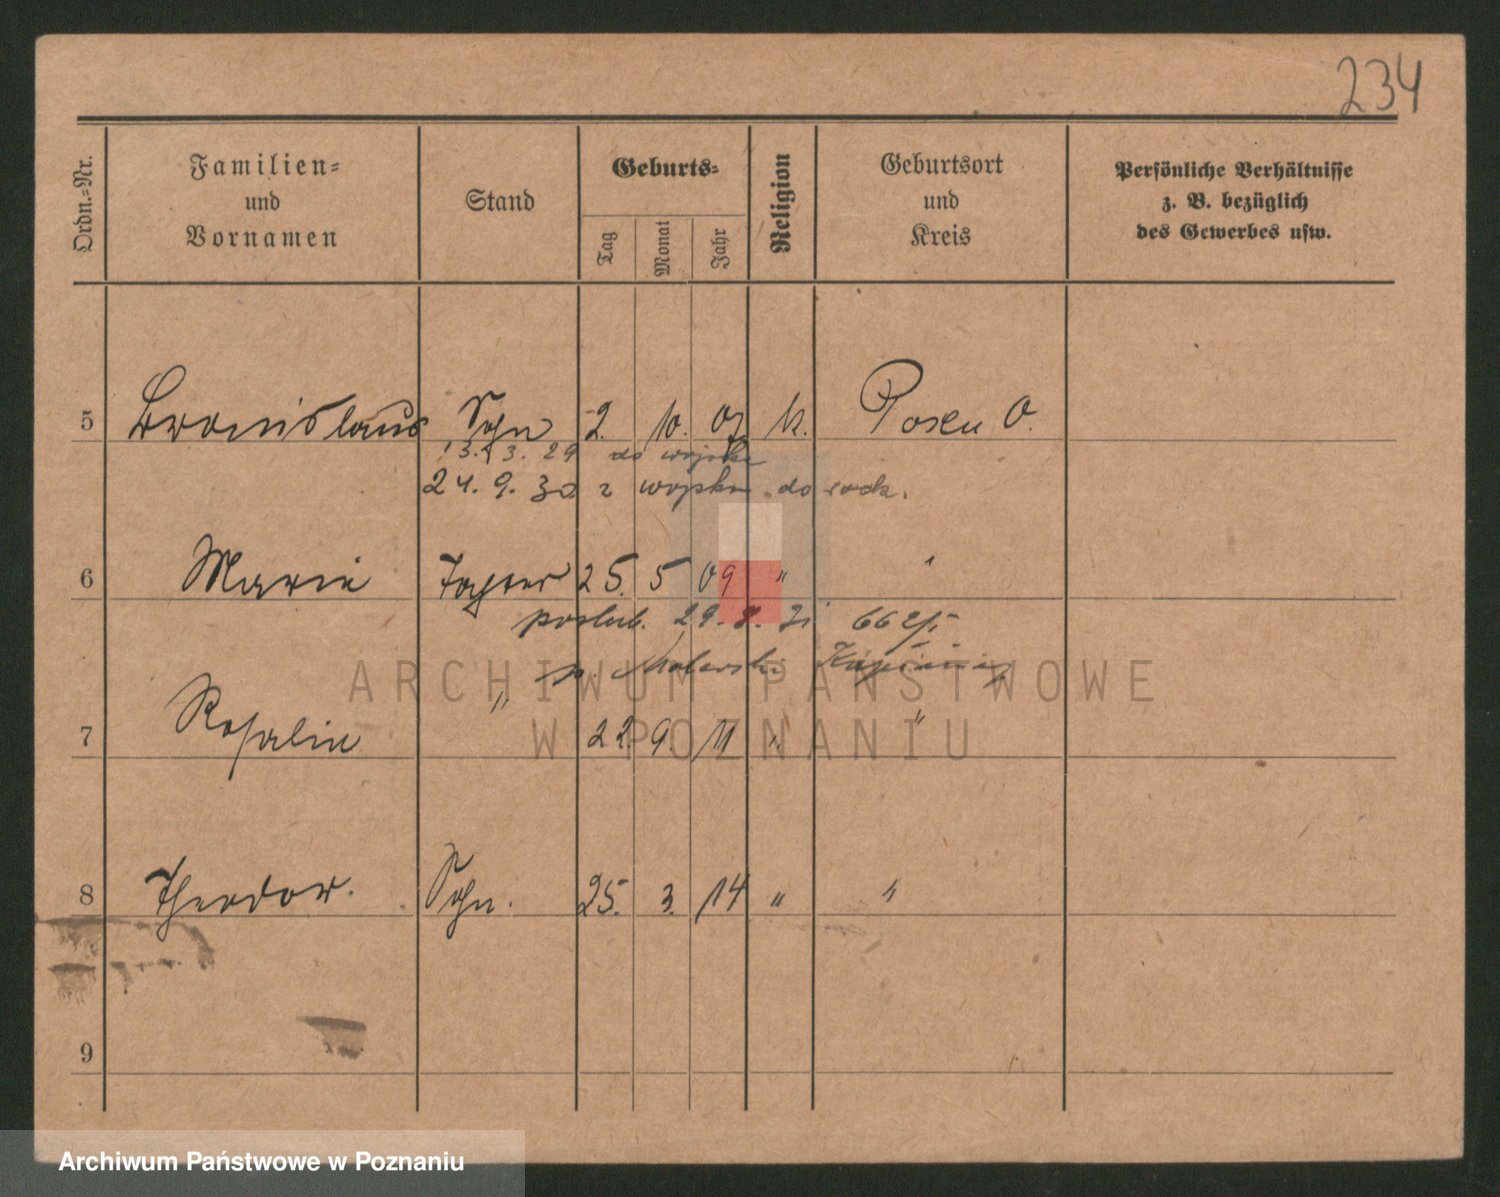 234
Ordn.=Nr.
Familien= und Vornamen
Stand
Geburts=
Tag
Monat
Jahr
Religion
Geburtsort und Kreis
Persönliche Verhältnisse z. B. bezüglich des Gewerbes usw.
5 Bronislaus Sohn 2. 10. 07 k. Posen O.
3. 29 do wojska
24. 9. 30 z wojska do rodz.
6 Marie Tochter 25. 5 09 " "
poślub. 29. 8. 31
ARCHIWUM PAŃSTWOWE
W POZNANIU
7 Rosalie " 22. 9. 11 " "
8 Theodor. Sohn. 25. 3. 14 " "
9
Archiwum Państwowe w Poznaniu